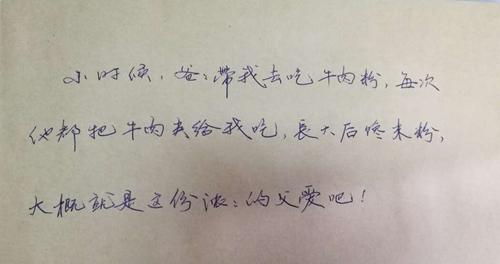 小时候，爸：带我去吃牛肉粉，每次
他都把牛肉夹给我吃，長大后疼来粉，
大概就是这份浓：的父爱吧！